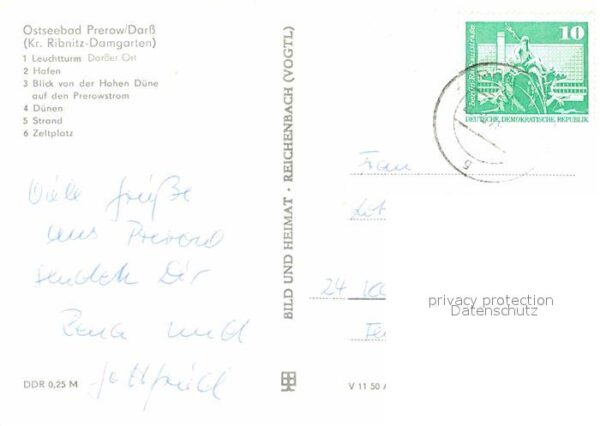 Ostseebad Prerow/Darß
(Kr. Ribnitz-Damgarten)
1 Leuchtturm Darßer Ort
2 Hafen
3 Blick von der Hohen Düne
auf den Prerowstrom
4 Dünen
5 Strand
6 Zeltplatz
Viele Grüße
aus Prerow
senden Dir
und
Gottfried
DDR 0,25 M
BILD UND HEIMAT · REICHENBACH (VOGTL)
V 11 50 A
10
berlin · Rathausstraße
DEUTSCHE DEMOKRATISCHE REPUBLIK
5
Frau
24
privacy protection
Datenschutz